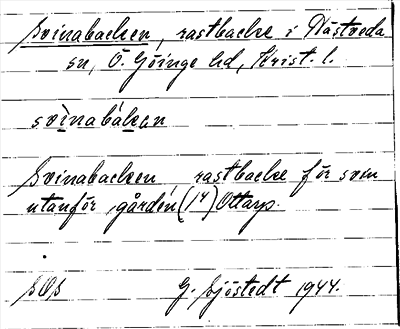 Svinabacken, rastbacke i Nästveda
sn, Ö. Göinge hd, Krist. l.
svìnabákan
Svinabacken, rastbacke för svin
utanför gården (14) Ottarp.
SOS G. Sjöstedt 1944.